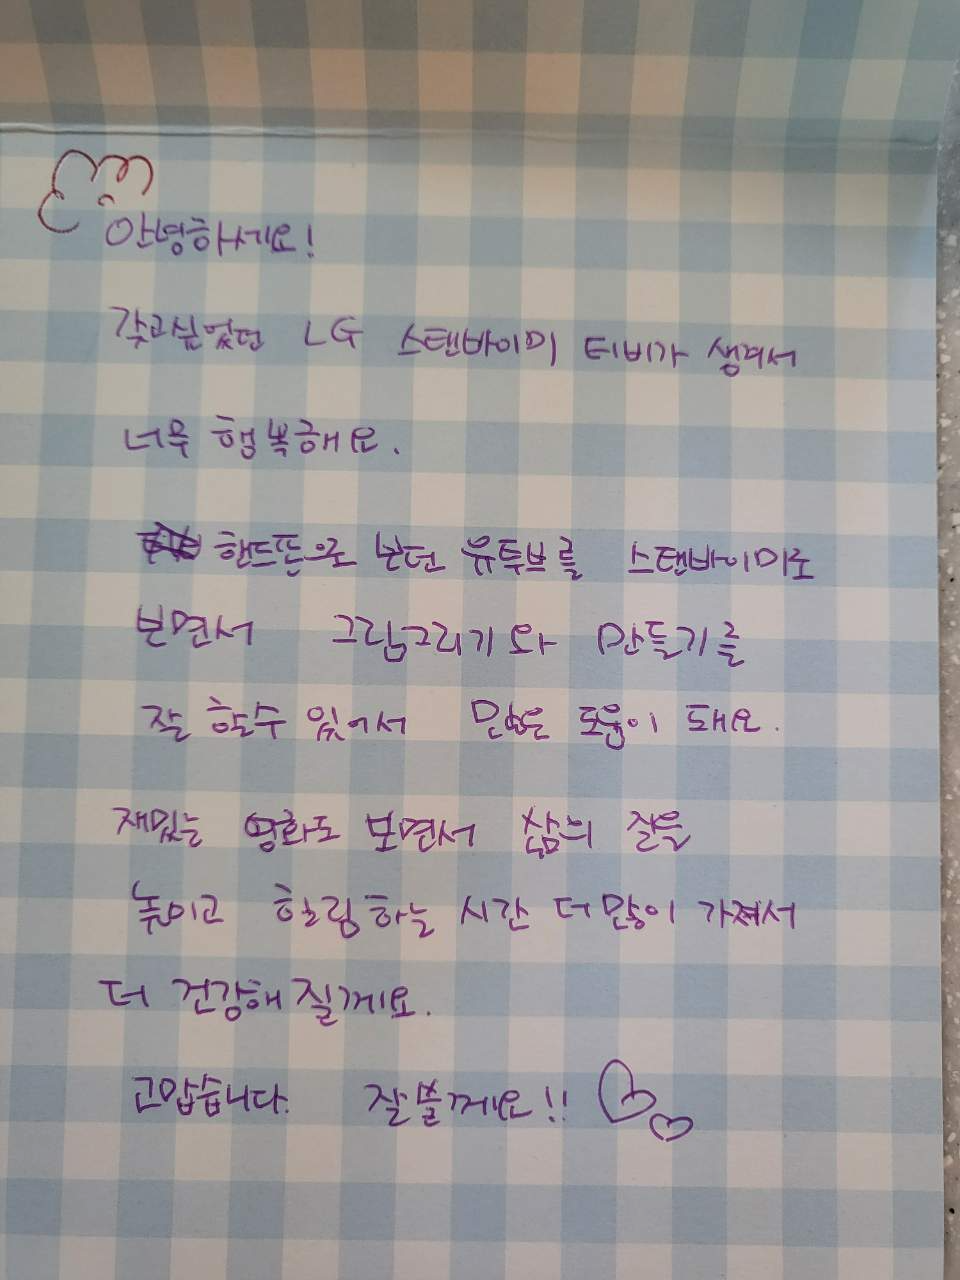 안녕하세요!
갖고싶었던 LG 스탠바이미 티비가 생겨서
너무 행복해요.
핸드폰으로 본던 유투브를 스탠바이미로
보면서 그림그리기와 만들기를
잘 할수 있어서 많은 도움이 돼요.
재밌는 영화도 보면서 삶의 질을
높이고 힐링하는 시간 더 많이 가져서
더 건강해 질게요.
고맙습니다. 잘볼게요!!